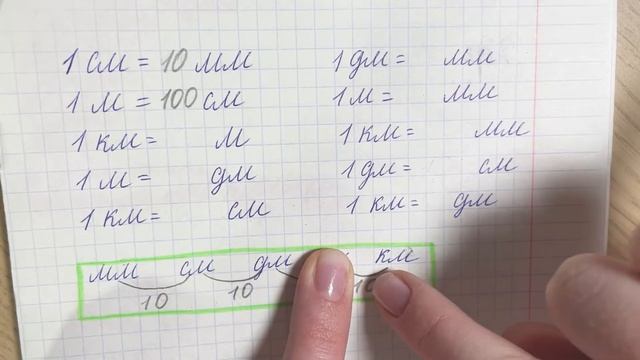 1 см = 10 мм
1 м = 100 см
1 км = м
1 м = дм
1 км = см
1 дм = мм
1 м = мм
1 км = мм
1 дм = см
1 км = дм
мм см дм км
10 10